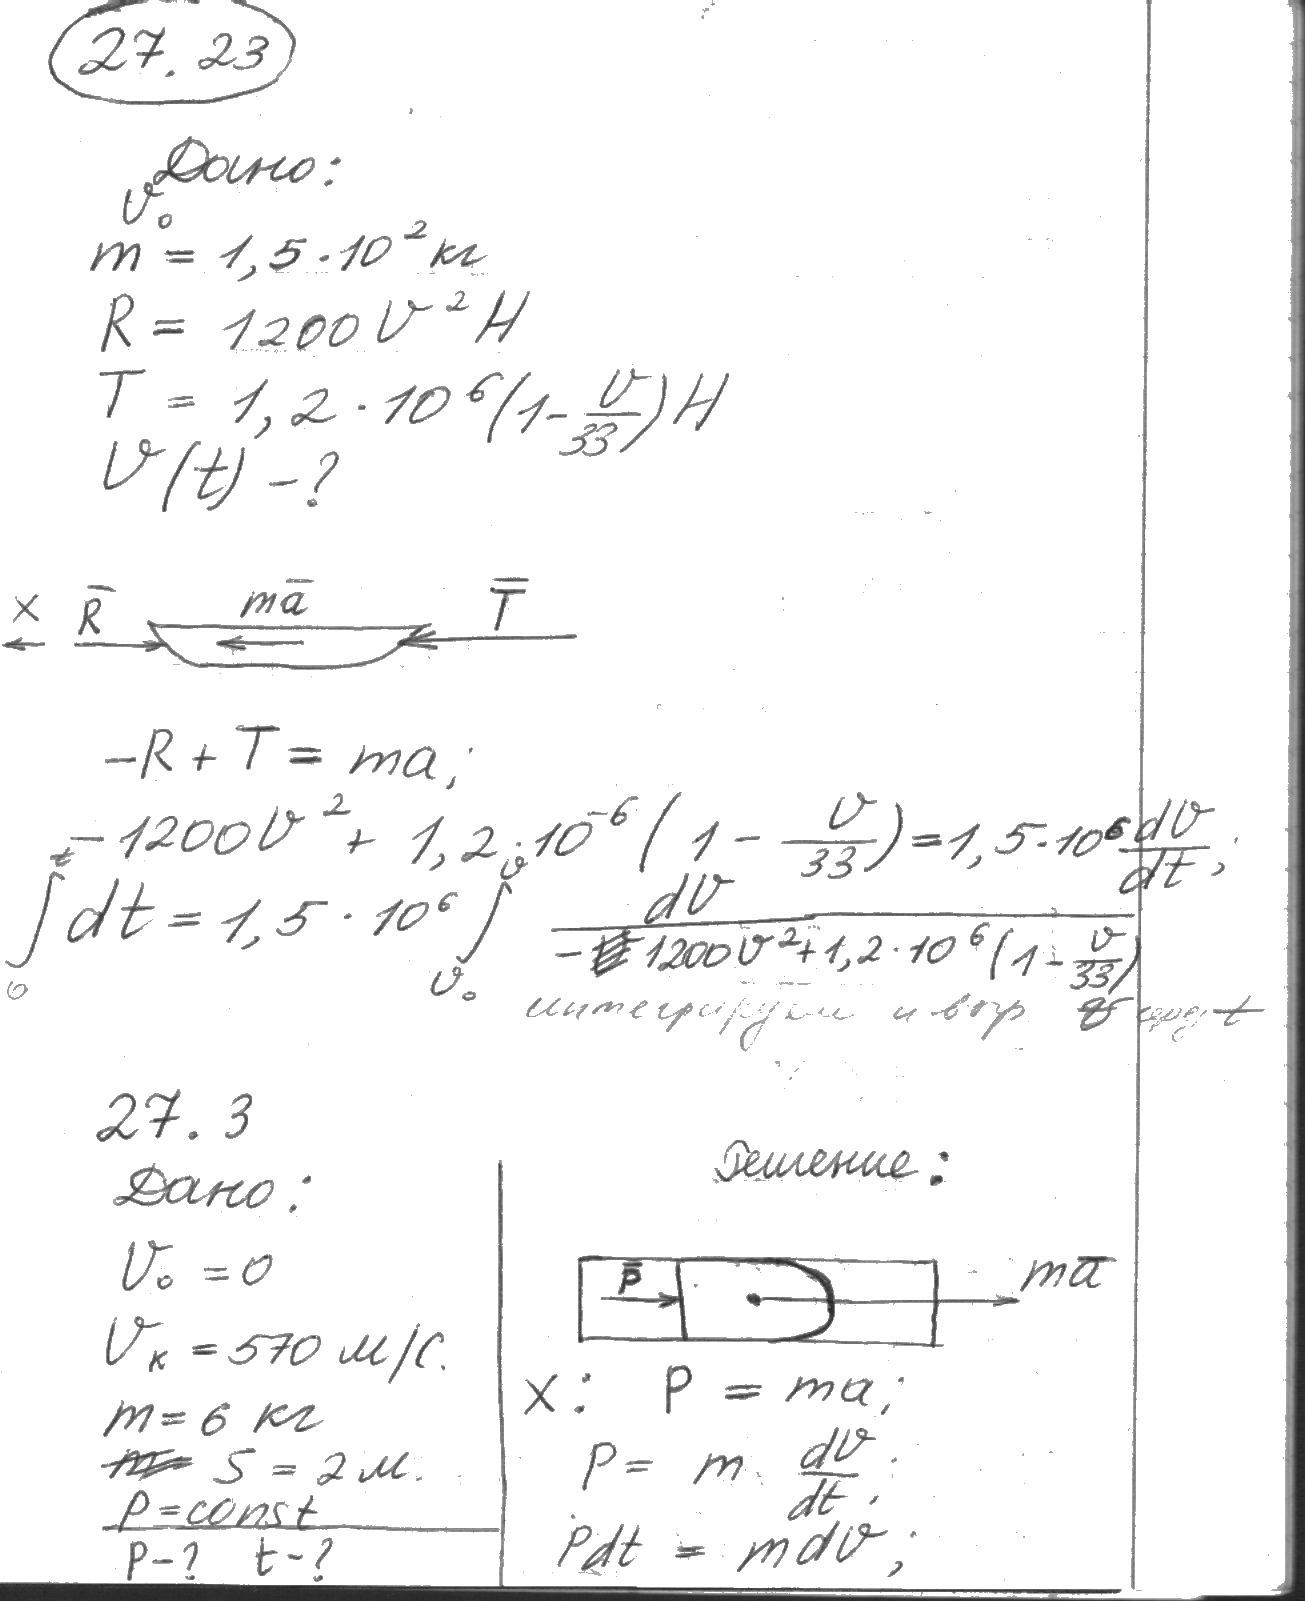 27.23
Дано:
v₀
m = 1,5·10² кг
R = 1200 v² H
T = 1,2·10⁶(1-v/33) H
v(t) -?
x R̄ mā T̄
-R + T = ma;
-1200v² + 1,2·10⁻⁶(1 - v/33) = 1,5·10⁶ dv/dt;
∫₀ᵗ dt = 1,5·10⁶ ∫ᵥ₀ᵛ dv / (-1200v² + 1,2·10⁶(1 - v/33))
интегрируем и
27.3
Дано:
v₀ = 0
vₖ = 570 м/с.
m = 6 кг
S = 2 м.
P = const
P-? t-?
Решение:
P̄ mā
x: P = ma;
P = m dv/dt;
Pdt = mdv;